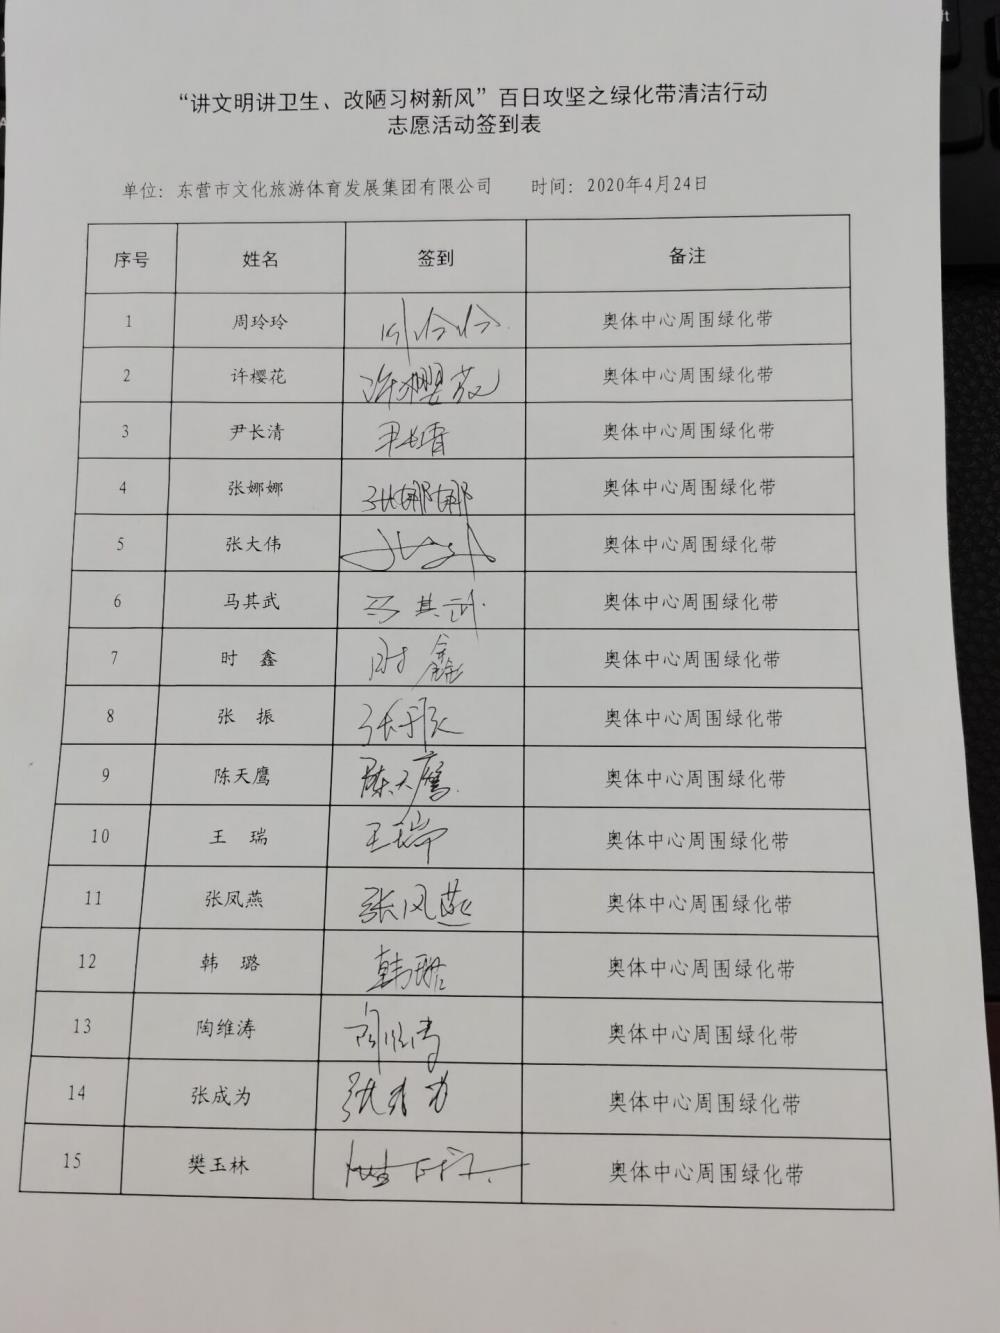 “讲文明讲卫生、改陋习树新风”百日攻坚之绿化带清洁行动
志愿活动签到表
单位：东营市文化旅游体育发展集团有限公司 时间：2020年4月24日
序号 姓名 签到 备注
1 周玲玲 奥体中心周围绿化带
2 许樱花 许樱花 奥体中心周围绿化带
3 尹长清 尹长清 奥体中心周围绿化带
4 张娜娜 张娜娜 奥体中心周围绿化带
5 张大伟 奥体中心周围绿化带
6 马其武 马其武 奥体中心周围绿化带
7 时 鑫 时鑫 奥体中心周围绿化带
8 张 振 张振 奥体中心周围绿化带
9 陈天鹰 陈天鹰 奥体中心周围绿化带
10 王 瑞 王瑞 奥体中心周围绿化带
11 张凤燕 张凤燕 奥体中心周围绿化带
12 韩 璐 韩璐 奥体中心周围绿化带
13 陶维涛 奥体中心周围绿化带
14 张成为 张成为 奥体中心周围绿化带
15 樊玉林 奥体中心周围绿化带